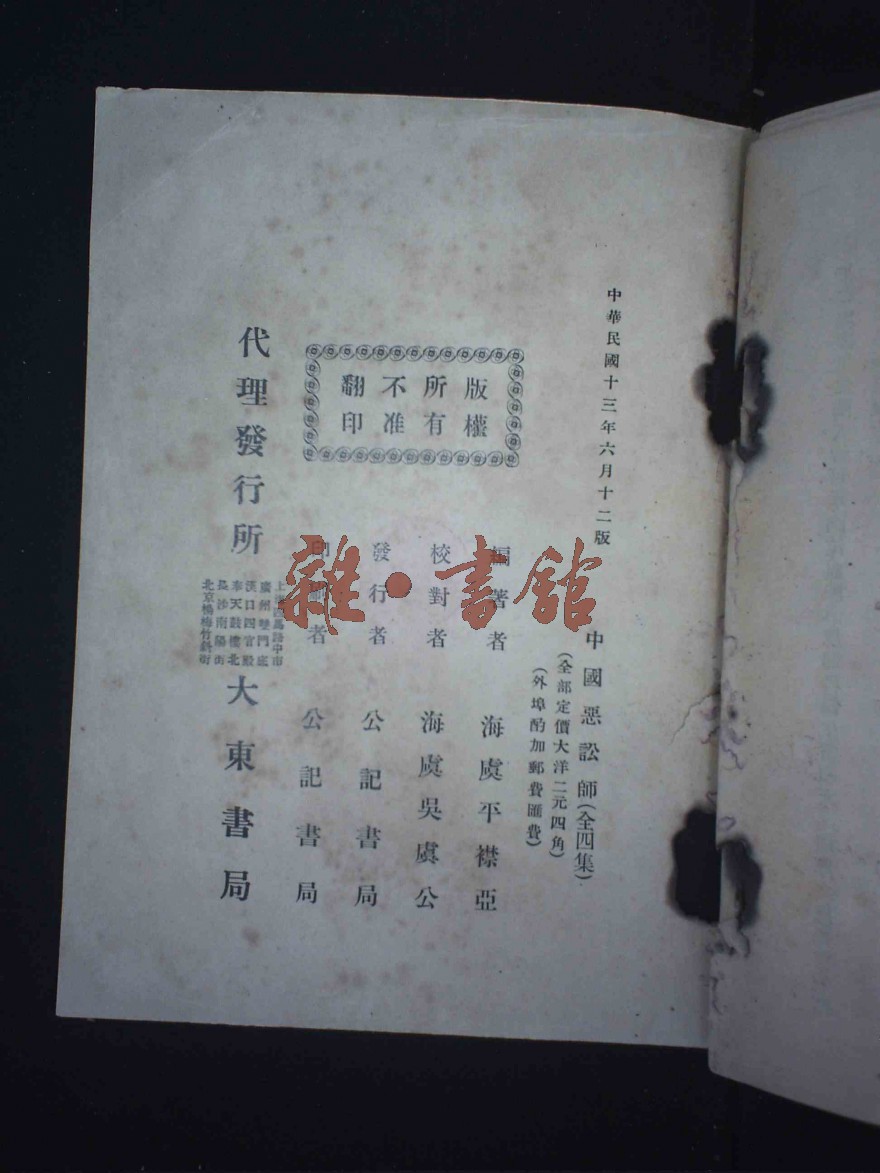 中華民國十三年六月十二版
中國惡訟師(全四集)
(全部定價大洋二元四角)
(外埠酌加郵費匯費)
版權
所有
不准
翻印
編著者 海虞平襟亞
校對者 海虞吳虞公
發行者 公記書局
印刷者 公記書局
代理發行所
上海四馬路中市
廣州雙門底
漢口四官殿
奉天鼓樓北
長沙南陽街
北京楊梅竹斜街
大東書局
雜·書館